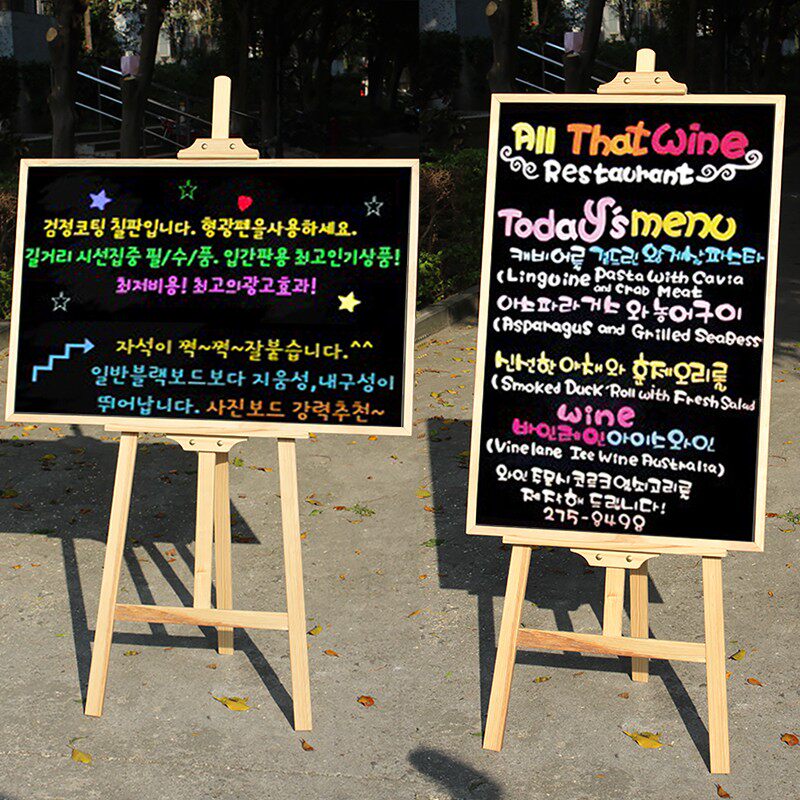 검정코팅 칠판입니다. 형광펜을사용하세요.
길거리 시선집중 필/수/품. 입간판용 최고인기상품!
최저비용! 최고의광고효과!
자석이 쩍~쩍~잘붙습니다.^^
일반블랙보드보다 지움성,내구성이
뛰어납니다. 사진보드 강력추천~
All That Wine
Restaurant
Today's menu
캐비어를 곁드린 와게살파스타
(Lingoine Pasta With Cavia
and Crab Meat
아스파라거스 와 농어구이
(Asparagus and Grilled SeaBess
신선한 야채와 훈제오리롤
(Smoked Duck Roll with Fresh Salad
Wine
바인레인아이스와인
(Vinelane Ice Wine Australia)
와인 드문시 코르크 열쇠고리를
제작해 드립니다!
275-8498